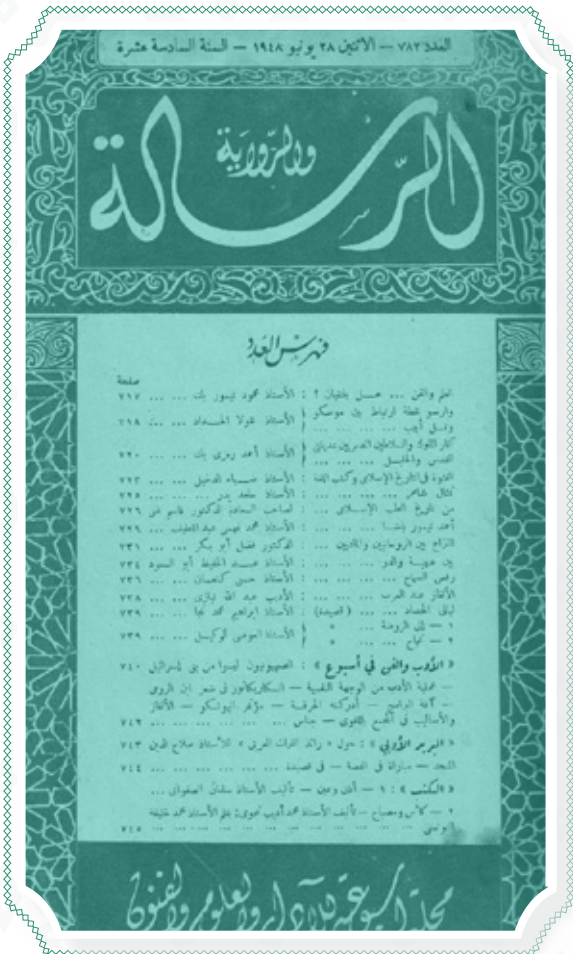 العدد ٧٨٢ — الاثنين ٢٨ يونيو ١٩٤٨ — السنة السادسة عشرة
الرسالة
والرواية
فهرس العدد
صفحة
العلم والفن ... هــل يلتقيان ؟ : الأستاذ محمود تيمور بك ... ... ٧١٧
وارسو نقطة ارتباط بين موسكو
وتــل أبيب ... ... ... ... : الأستاذ نقولا الحــداد ... ... ٧١٨
: الأستاذ أحمد رمزي بك ... ... ٧٢٠
القدس والخليــل ... ... ...
الفتوة في التاريخ الإسلامي وكتب اللغة : الأستاذ ضيــاء الدخيلي ... ... ٧٢٣
... ... ... ... : الأستاذ ... ... ... ٧٢٥
من تاريخ الطب الإســلامي ... : لصاحب السعادة الدكتور قاسم غني ٧٢٦
أحمد تيمور باشــا ... ... ... : الأستاذ محمد فهمي عبد اللطيف ... ٧٢٩
النزاع بين الروحانيين والماديين ... : الدكتور فضل أبو بكر ... ... ٧٣١
... ... ... : الأستاذ عبــد الحفيظ أبو السعود ٧٣٤
... ... ... ... : الأستاذ حسن كــمــان ... ... ٧٣٦
الألغاز عند العرب ... ... ... : الأديب عبد الله نيازي ... ... ٧٣٨
ليالي الحصاد ... ... ( قصيدة ) : الأستاذ إبراهيم محمد نجا ... ... ٧٣٩
١ — إلى الروضة ... »
٢ — كفاح ... ... » : الأستاذ العوضي الوكيــل ... ... ٧٣٩
« الأدب والفن في أسبوع » : الصهيونيون ليسوا من بني إسرائيل ٧٤٠
— عملية الأدب من الوجهة النفسية — الكاريكاتور في شعر ابن الرومي
— أدركته الحرفــة — مؤتمر اليونسكو — الألفاظ
والأساليب في المجمع اللغوي — ... ... ... ... ... ٧٤٢
« البريد الأدبي » : حول « رائد التراث العربي » للأستاذ صلاح الدين ٧٤٣
المنجد — مباراة في القصة — في قصيدة ... ... ... ... ٧٤٤
« الكتب » : ١ — — تأليف الأستاذ ...
٢ — كأس ومصباح — تأليف الأستاذ محمد أديب نحوي : بقلم الأستاذ محمد خليفة
التونسي ... ... ... ... ... ... ٧٤٥
مجلة أسبوعية للآداب والعلوم والفنون